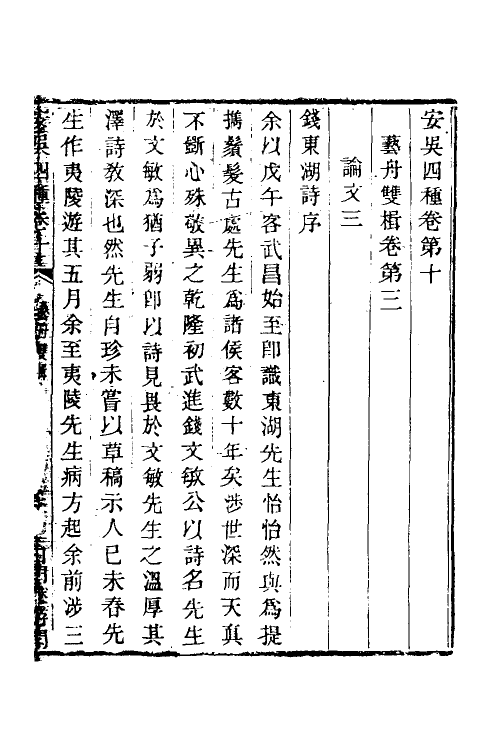 安吳四種卷第十
藝舟雙楫卷第三
論文三
錢東湖詩序
余以戊午客武昌始至卽識東湖先生怡怡然與爲提
攜鬚髮古處先生爲諸侯客數十年矣涉世深而天眞
不斲心殊敬異之乾隆初武進錢文敏公以詩名先生
於文敏爲猶子弱卽以詩見畏於文敏先生之溫厚其
澤詩敎深也然先生自珍未嘗以草稿示人已未春先
生作夷陵遊其五月余至夷陵先生病方起余前涉三